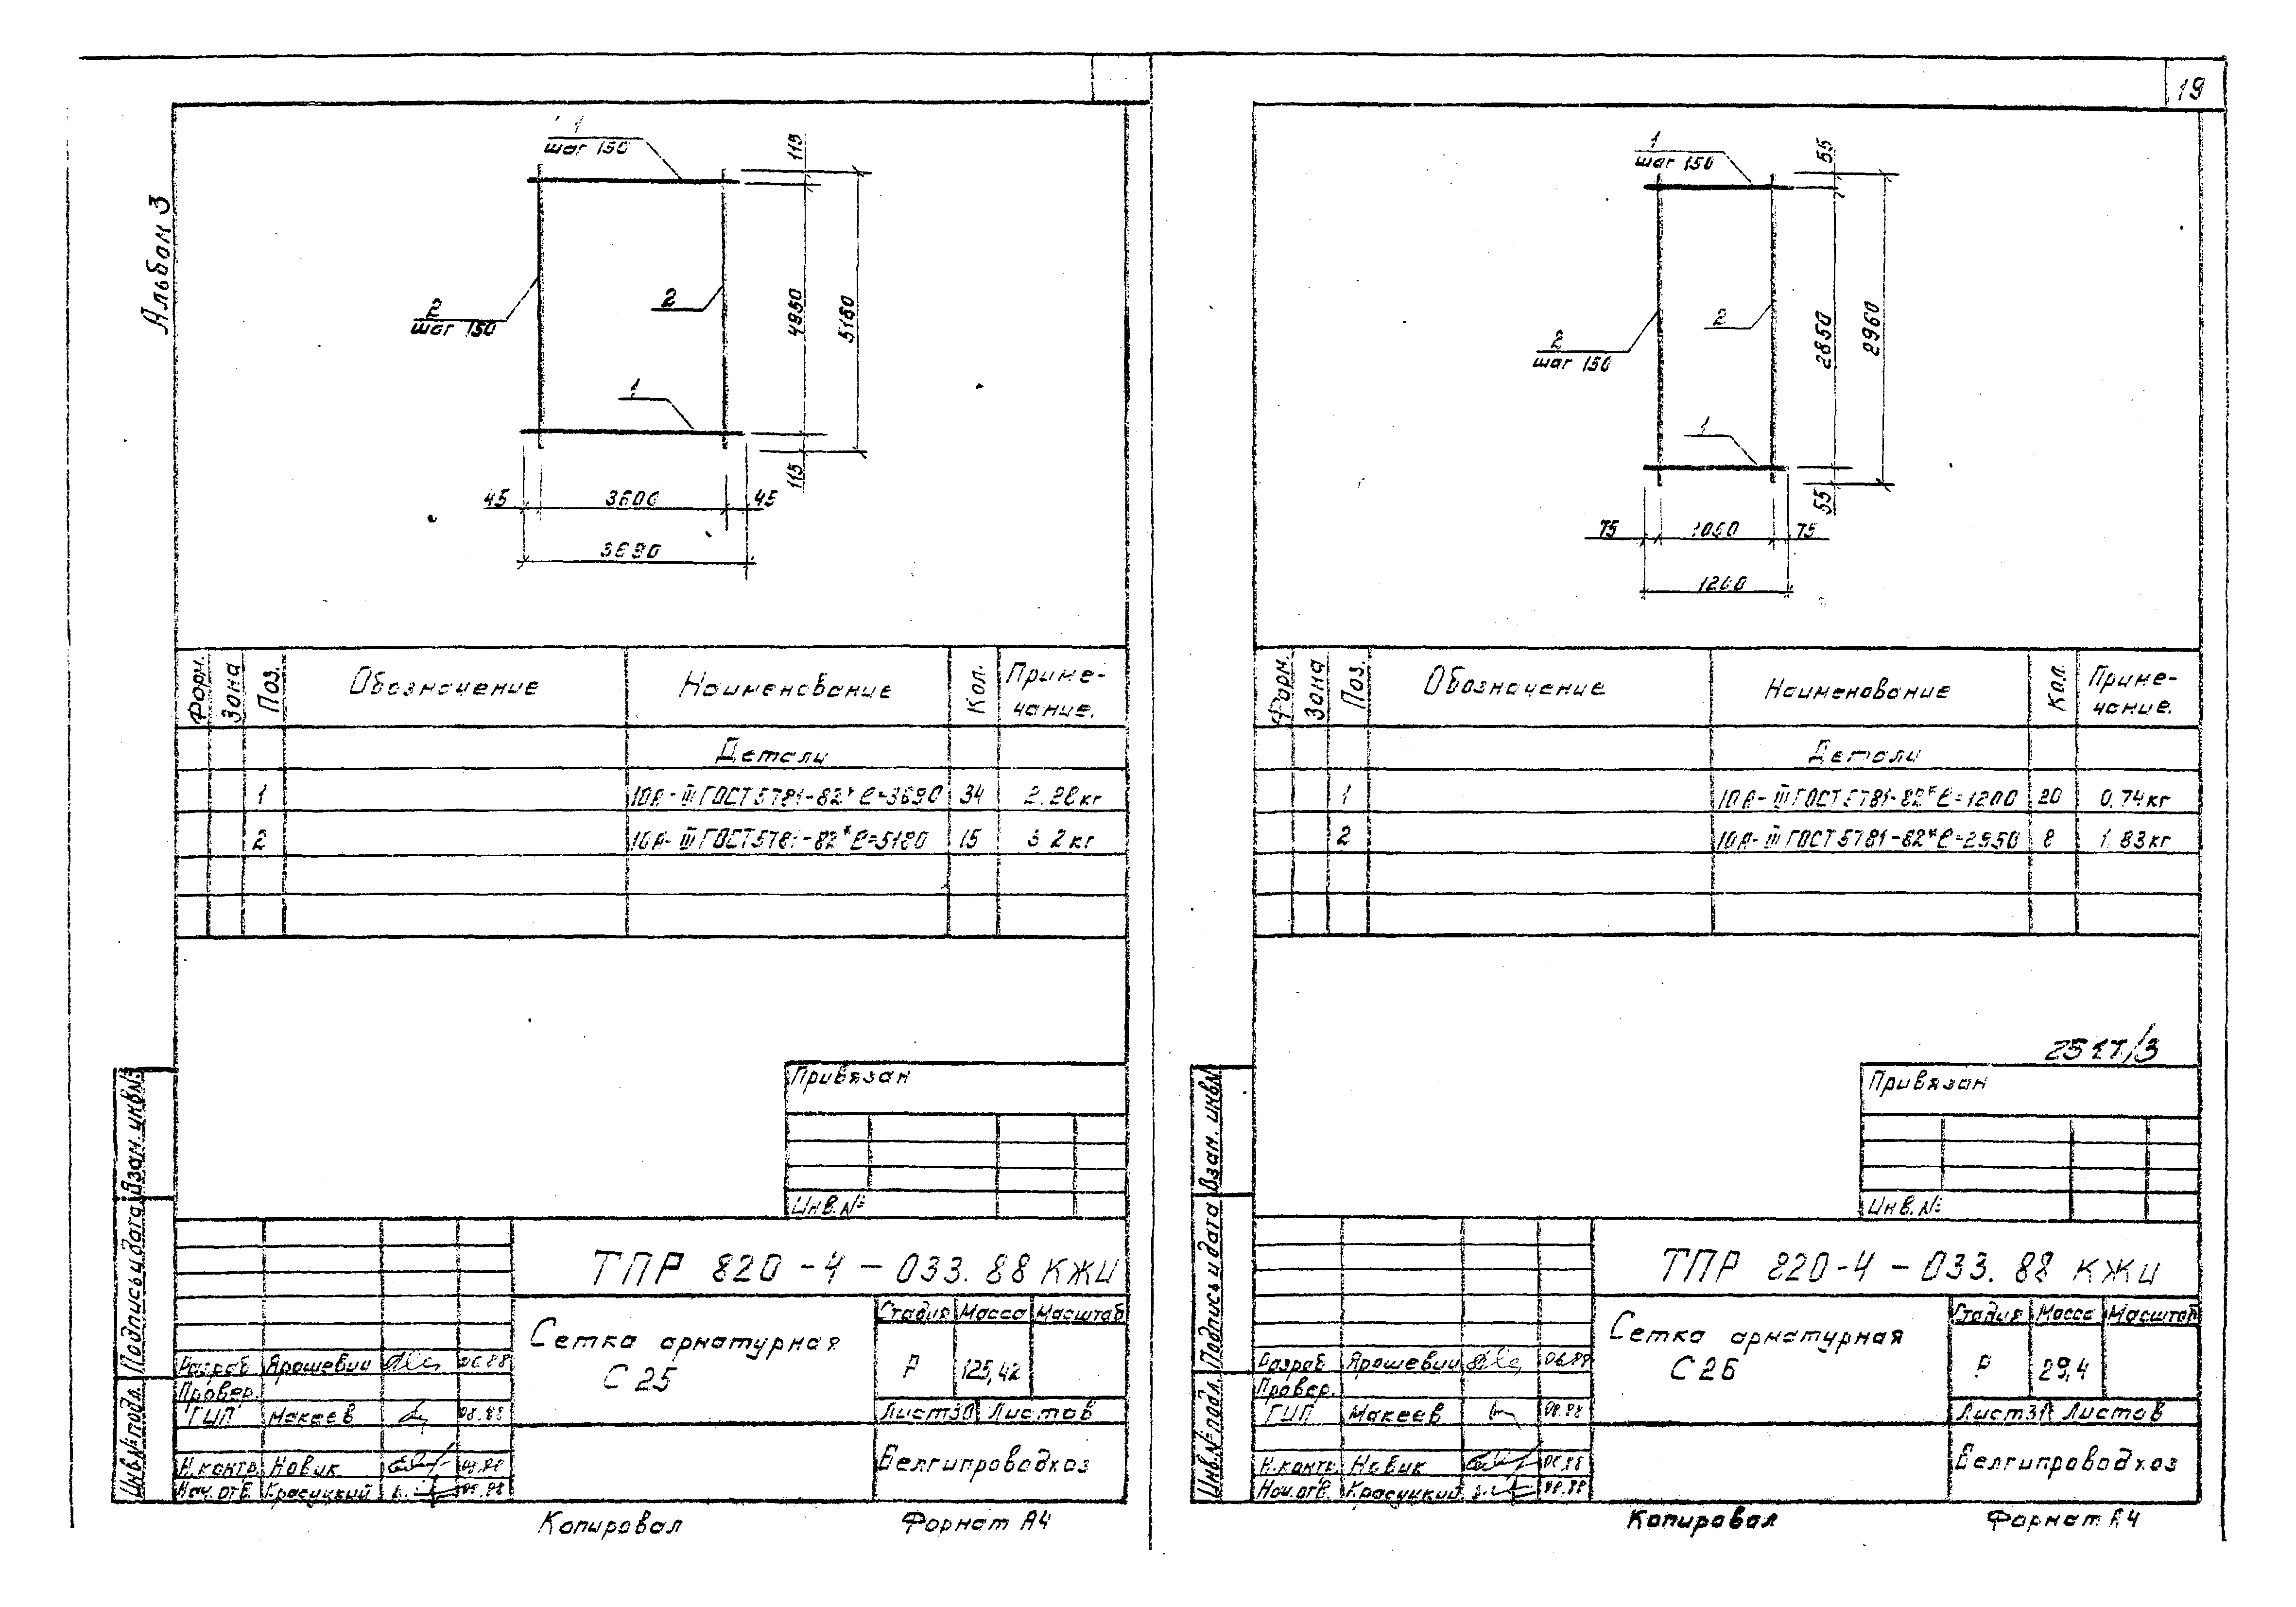 19
Альбом 3
1
шаг 150
115
2
шаг 150
2
4950
5180
1
115
45 3600 45
3690
Форм. Зона Поз. Обозначение Наименование Кол. Приме-
чание.
Детали
1 10А-III ГОСТ 5781-82* ℓ=3690 34 2.28кг
2 10А-III ГОСТ 5781-82* ℓ=5180 15 3 2кг
Привязан
Инв.№
ТПР 820-4-033.88 КЖИ
Сетка арматурная
С 25
Стадия Масса Масштаб
Р 125,42
Лист 30 Листов
Белгипроводхоз
Разраб. Ярошевич 06.88
Провер.
ГИП Макеев 08.88
Н.контр. Новик
Нач.отв. Красуцкий
Инв.№подл. Подпись и дата Взам.инв.№
Копировал Формат А4
1
шаг 150
55
2
шаг 150
2
2850
2960
1
55
75 1050 75
1200
Форм. Зона Поз. Обозначение Наименование Кол. Приме-
чание.
Детали
1 10А-III ГОСТ 5781-82* ℓ=1200 20 0,74кг
2 10А-III ГОСТ 5781-82* ℓ=2950 8 1,83кг
Привязан
Инв.№
ТПР 820-4-033.88 КЖИ
Сетка арматурная
С 26
Стадия Масса Масштаб
Р 29,4
Лист 31 Листов
Белгипроводхоз
Разраб. Ярошевич 06.88
Провер.
ГИП Макеев 08.88
Н.контр. Новик 08.88
Нач.отв. Красуцкий 08.88
Инв.№подл. Подпись и дата Взам. инв.№
Копировал Формат А4